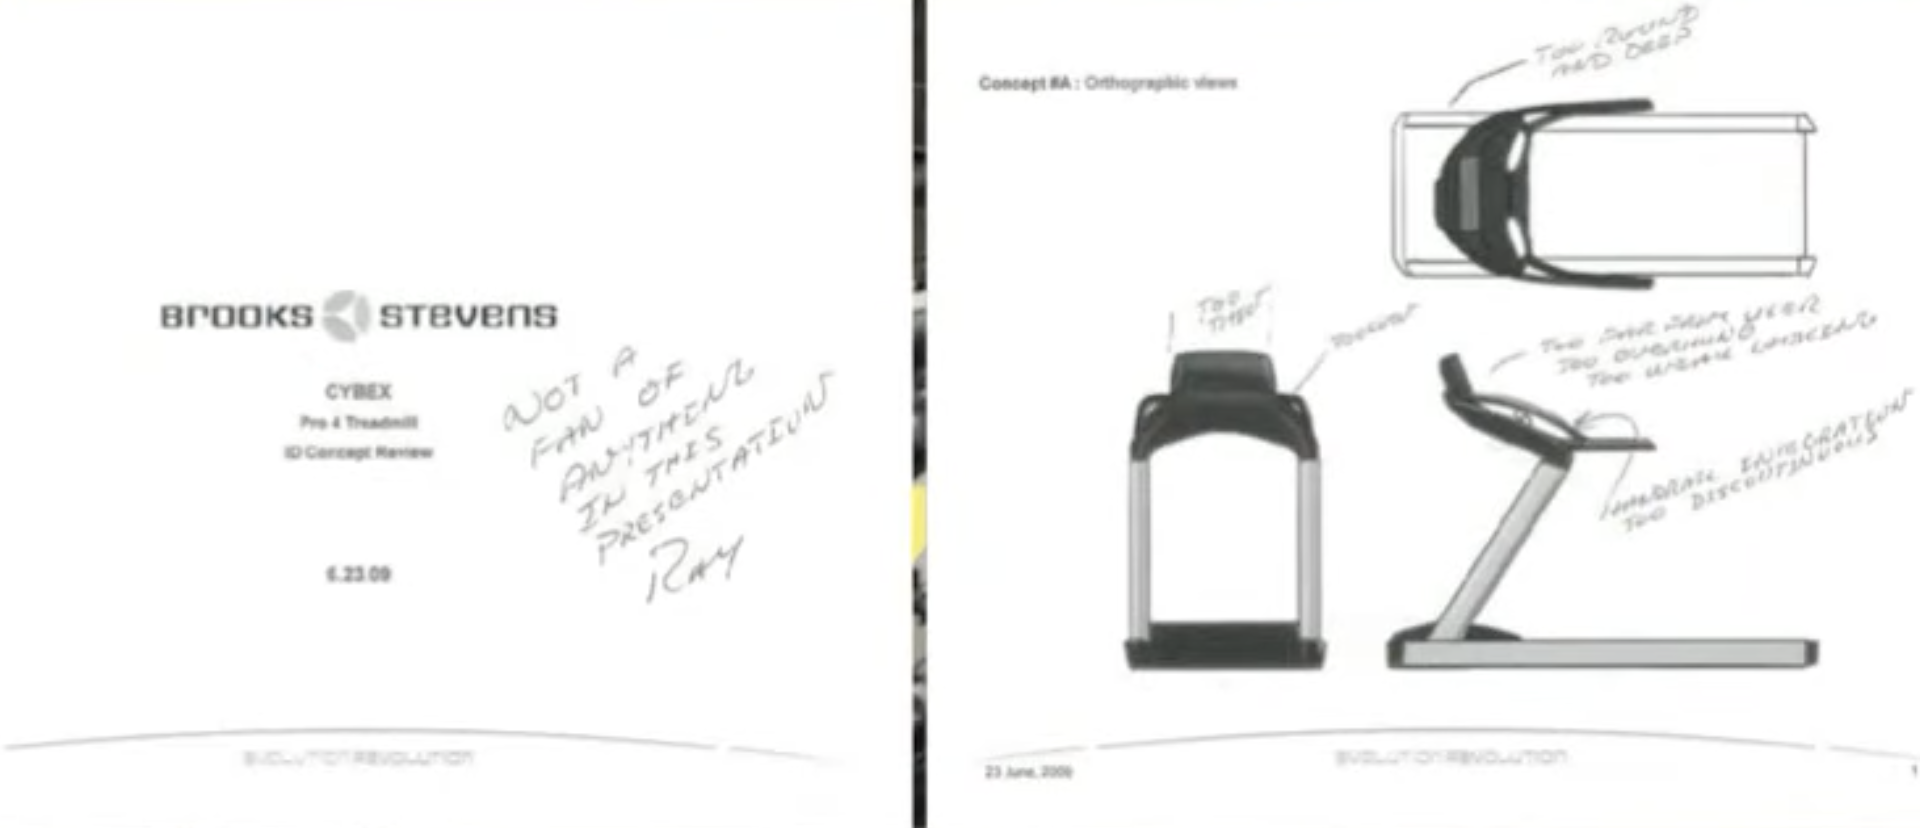 BROOKS STEVENS
CYBEX
Pro 4 Treadmill
ID Concept Review
6.23.09
NOT A
FAN OF
ANYTHING
IN THIS
PRESENTATION
RAY
EVOLUTION REVOLUTION
Concept #A : Orthographic views
TOO ROUND
AND DEEP
TOO
TOO FAR FROM USER
TOO
TOO WEAK LOOKING
HANDRAIL INTEGRATION
TOO DISCONTINUOUS
23 June, 2009
EVOLUTION REVOLUTION
1